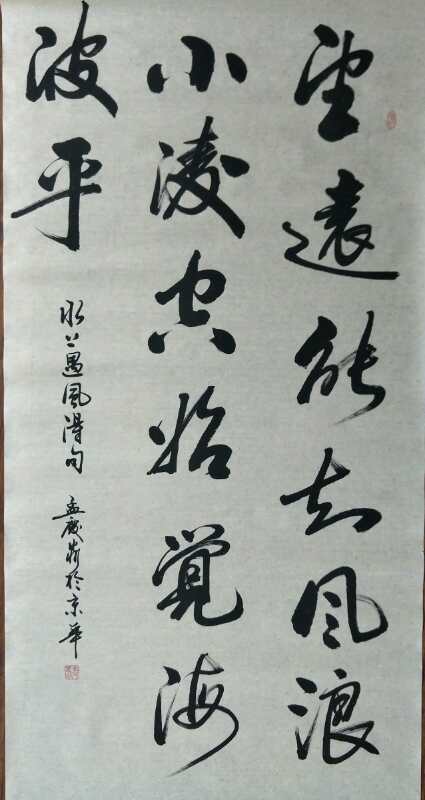 望遠能知风浪
小凌空始覺海
波平
水上遇風得句
孟慶
於京華